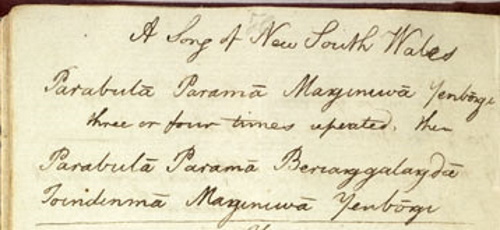 A Song of New South Wales
Parabulā Paramā Manginiwā Yenbōngi
three or four times repeated, then
Parabulā Paramā Berianggalangdā
Toindinmā Manginiwā Yenbōngi